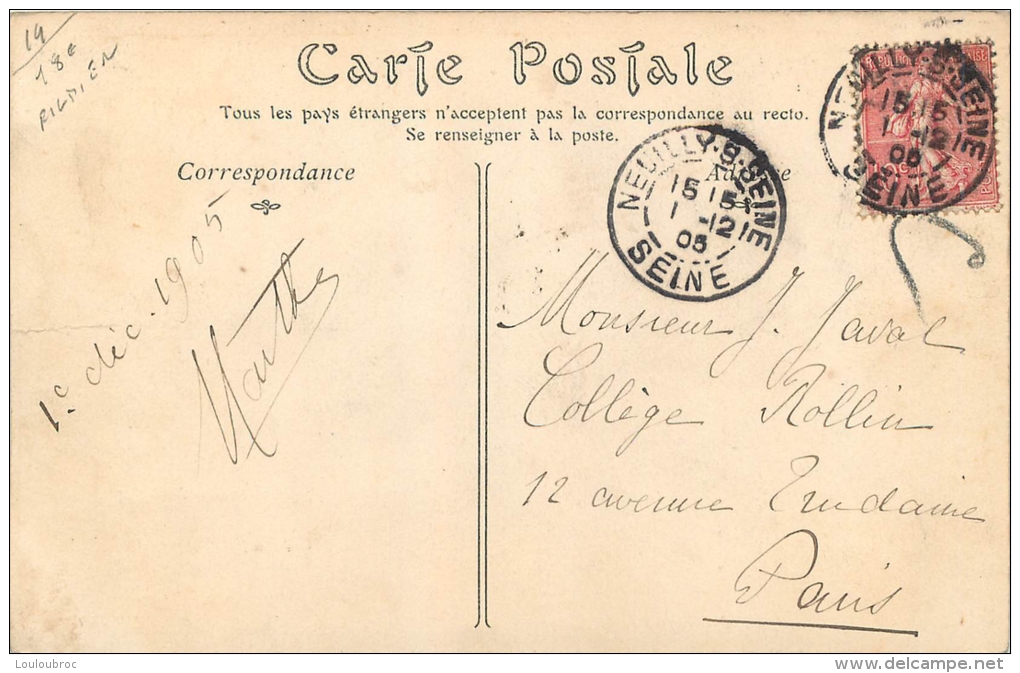 19
18€
Carte Postale
Tous les pays étrangers n'acceptent pas la correspondance au recto.
Se renseigner à la poste.
Correspondance
Adresse
NEUILLY-S-SEINE
15 15
1 -12
05
SEINE
NEUILLY-S-SEINE
15 15
1 -12
05
SEINE
1.c déc. 1905
Marthe
Monsieur J. Javal
Collège Rollin
12 avenue Trudaine
Paris
Louloubroc
www.delcampe.net